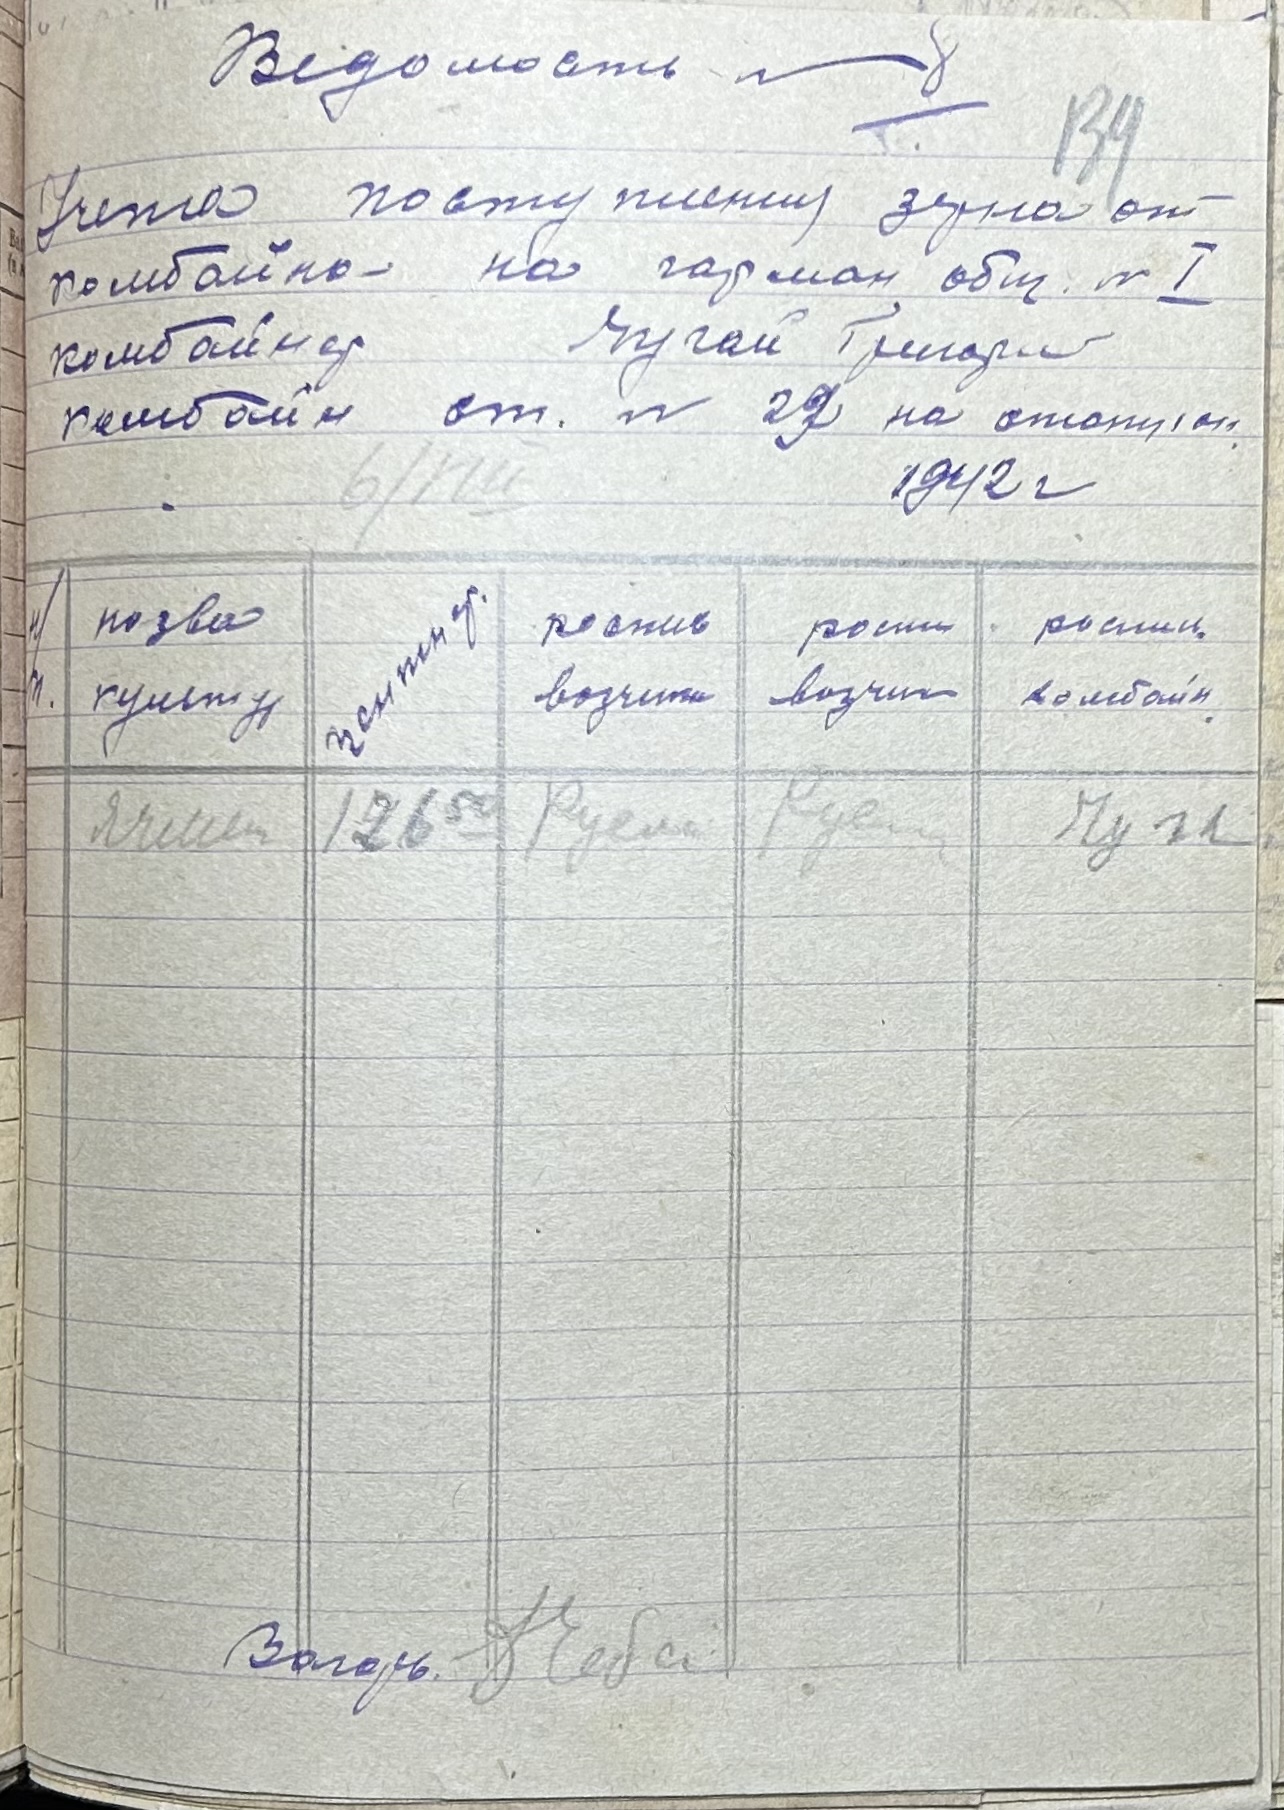 Ведомость № 8
134
Учета поступления зерна от
комбайна на гарман общ. № I
комбайнер Чугай Григорий
комбайн ст. № 29 на
6/VIII 1942 г
н/п. назва культур центнер. роспис возчика роспис возчик роспис. комбайн.
Ячмень 126 50 Чуг